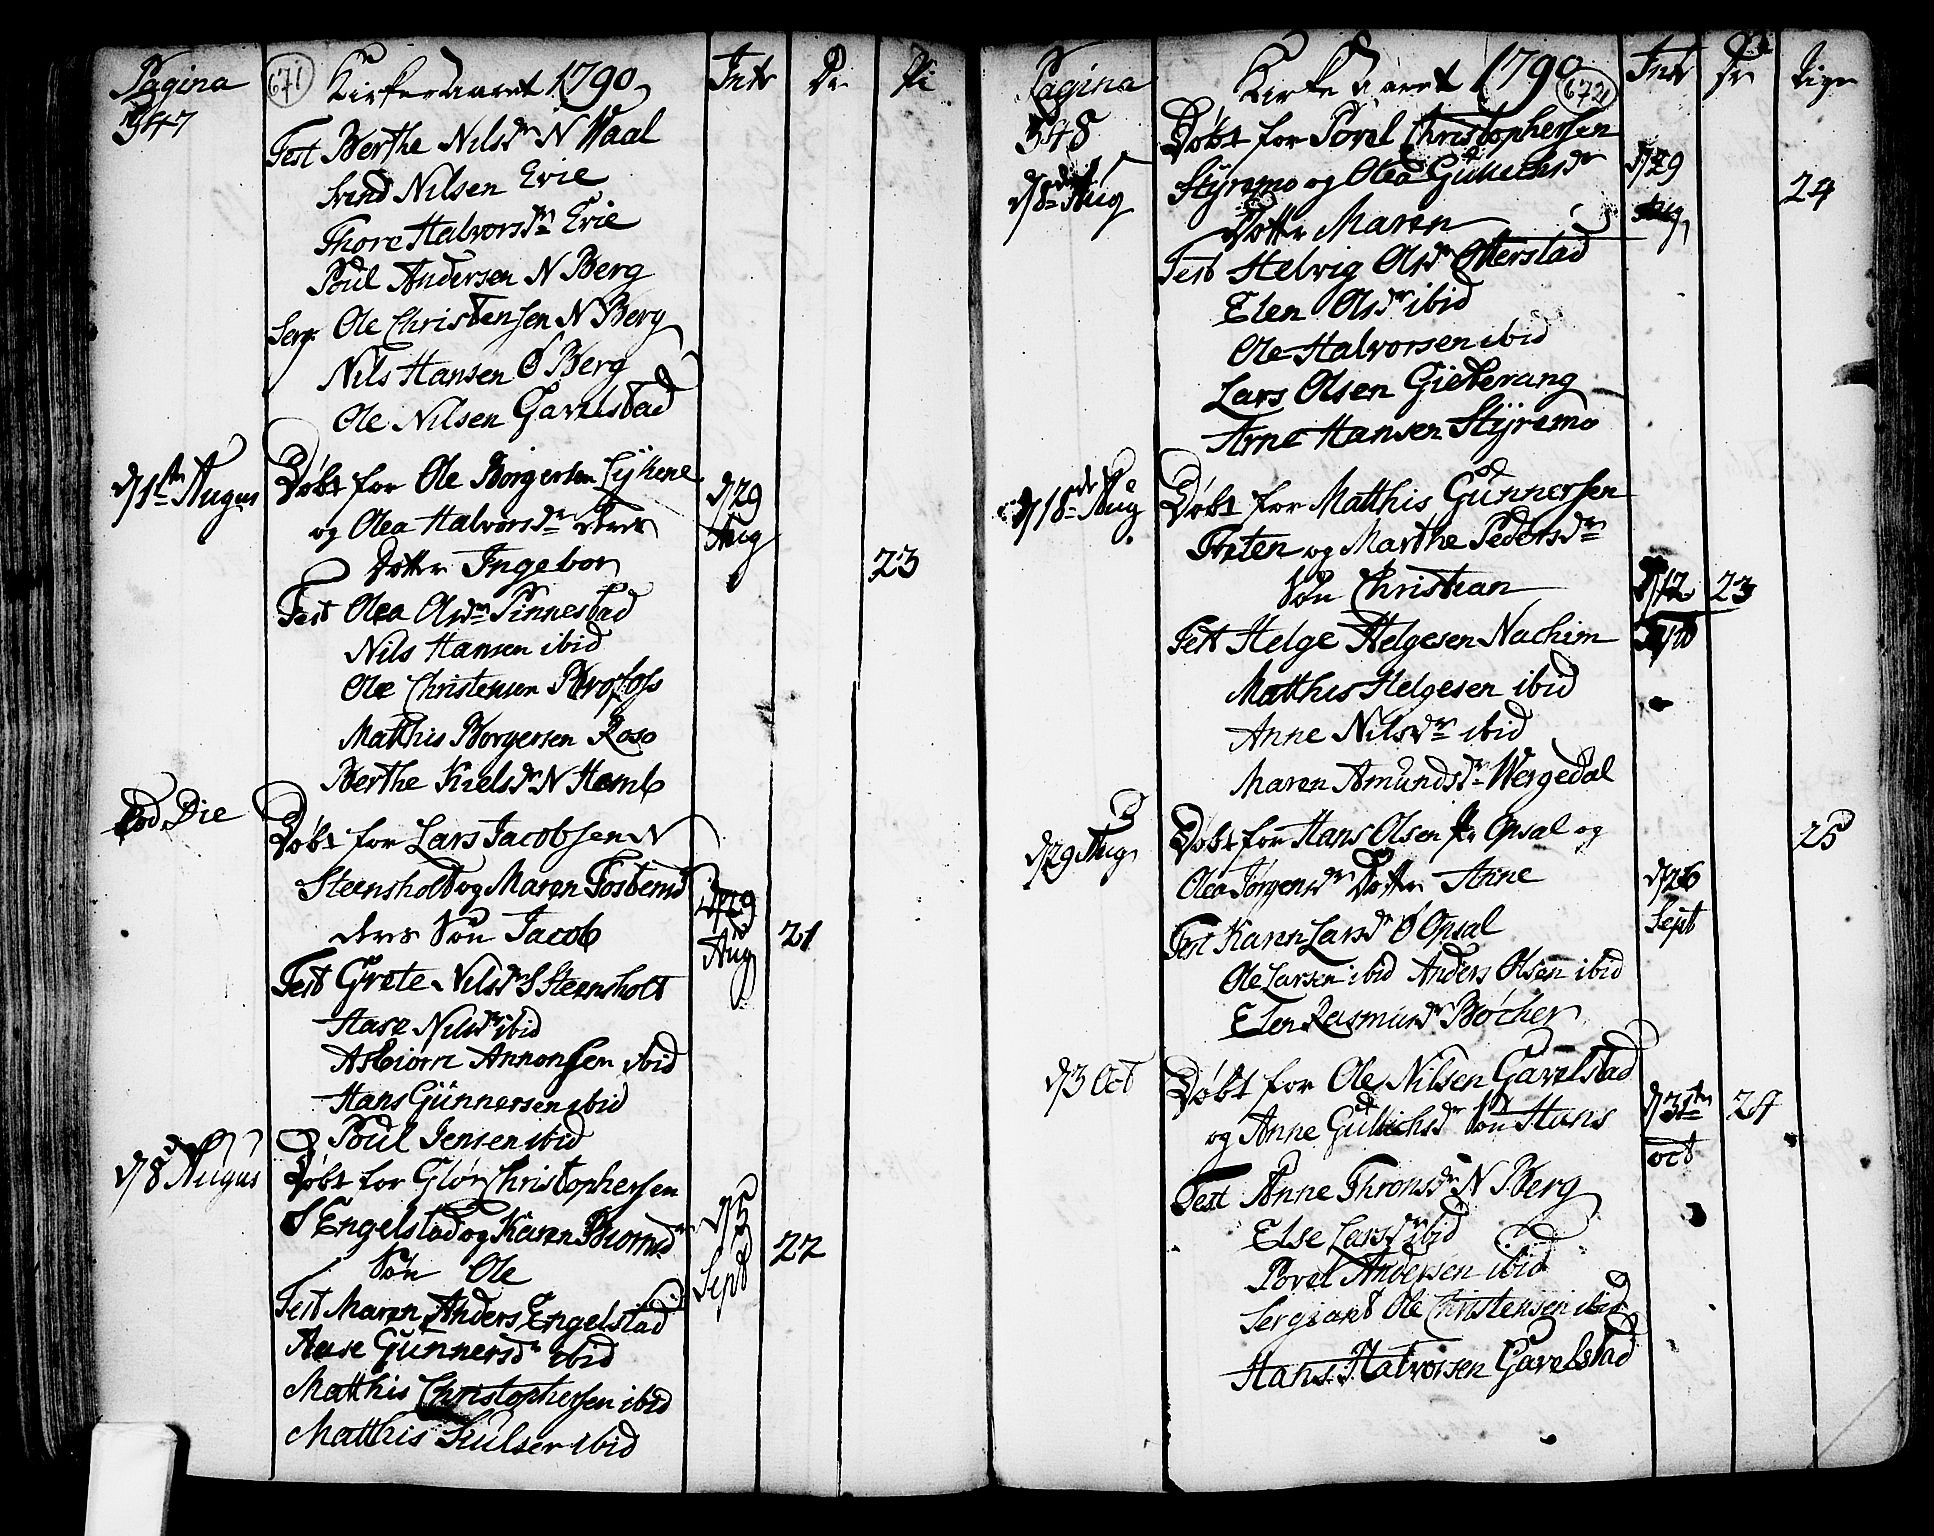 Pagina
547
671
Kirke Aaret 1790
Intr
Dr
Pi
Test Berthe Nilsdr N Waal
Svend Nilsen Evie
Thore Halvorsdr Evie
Poul Andersen N Berg
Serg: Ole Christensen N Berg
Nils Hansen Ø Berg
Ole Nilsen Gavelstad
d 1ste Augus
Døbt for Ole Borgersen Lykene
og Olea Halvorsdr deres
Dotter Ingebor
d 29
Aug
23
Test Olea Olsdr Pinnestad
Nils Hansen ibid
Ole Christensen Brofoss
Matthis Borgersen Roso
Berthe Kielsdr N Hemb
Eod Die
Døbt for Lars Jacobsen N
Steensholt og Maren Tostensd
deres Søn Jacob
d 29
Aug
21
Test Grete Nilsdr S Steensholt
Aase Nilsdr ibid
Asbiorn Annonsen ibid
Hans Gunnersen ibid
Poul Jensen ibid
d 8 Augus
Døbt for Glør Christophersen
S Engelstad og Karen Biornsdr
Søn Ole
d 5
Sept
22
Test Maren Anders Engelstad
Aase Gunnersdr ibid
Matthis Christophersen ibid
Matthis ibid
Pagina
548
Kirke Aaret 1790
672
Intr
Dr
Piger
d 8de Aug
Døbt for Povel Christophersen
Styremo og Olea Gulichsdr
Dotter Maren
d 29
Aug
24
Test Helvig Olsdr Otterstad
Elen Olsdr ibid
Ole Halvorsen ibid
Lars Olsen Gieterang
Arne Hansen Styremo
d 18de Aug
Døbt for Matthis Gunnersen
Treten og Marthe Pedersdr
Søn Christian
d 12
Sept
23
Test Helge Helgesen Nachim
Matthis Helgesen ibid
Anne Nilsdr ibid
Maren Amundsdr Wergedal
d 29 Aug
Døbt for Hans Olsen Opsal og
Olea Jørgensdr Dotter Anne
d 26
Sept
25
Test Karen Larsdr Ø Opsal
Ole Larsen ibid Anders Olsen ibid
Elen Rasmusdr Bøcher
d 3 Oct
Døbt for Ole Nilsen Gavelstad
og Anne Gulichsdr Søn Hans
d 31te
oct
24
Test Anne Thronsdr N Berg
Else Larsdr ibid
Povel Andersen ibid
Sergeant Ole Christensen ibid
Hans Halvorsen Gavelstad